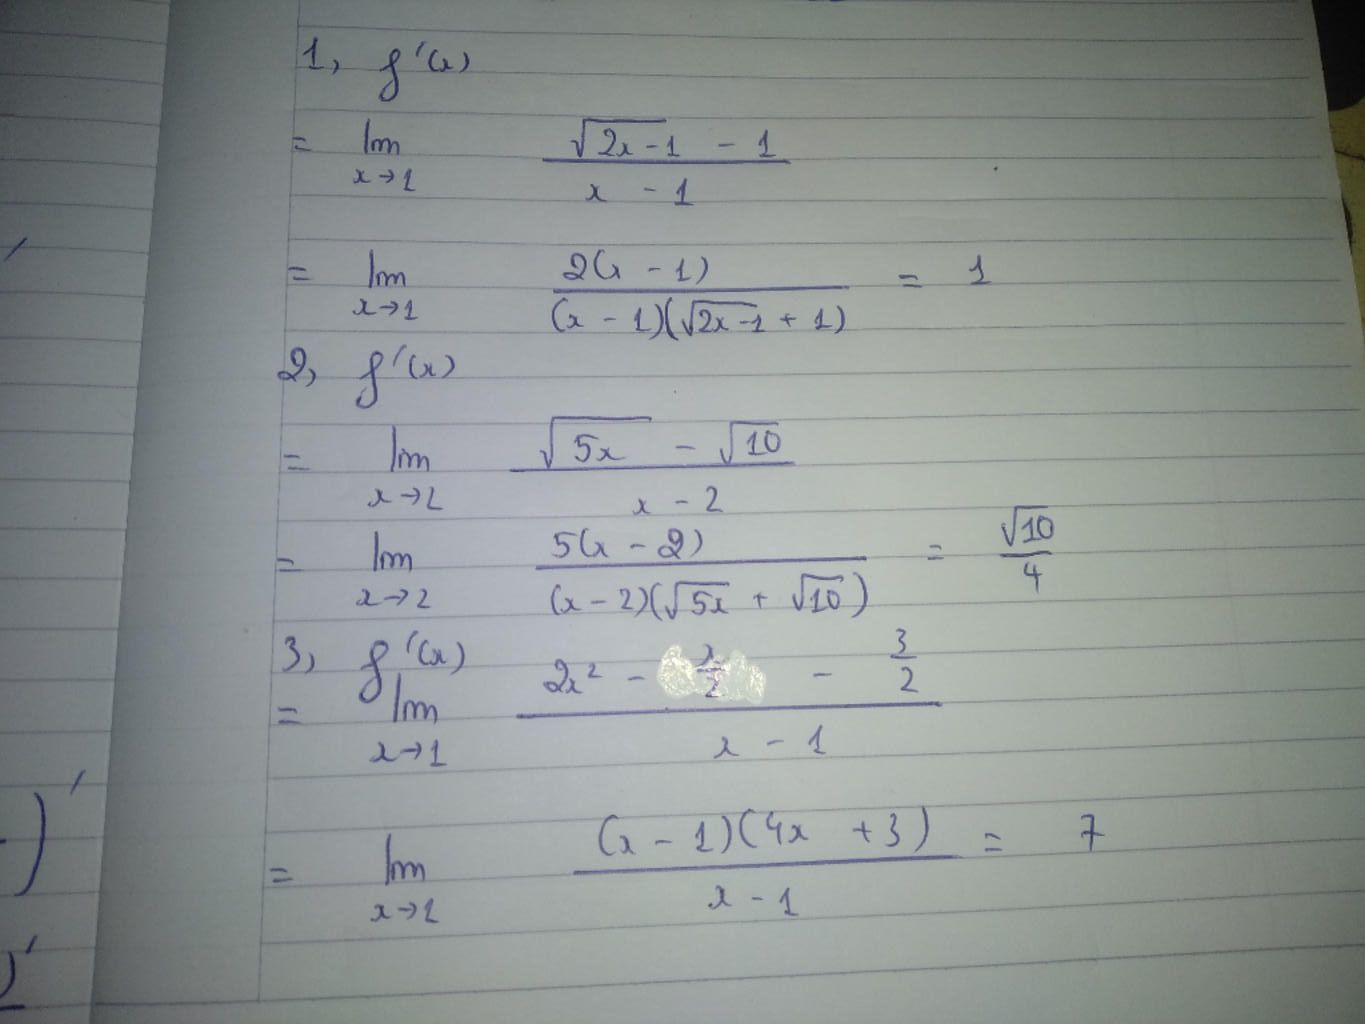 1, f'(x)
= lim x→1 (√(2x-1) - 1)/(x - 1)
= lim x→1 2(x - 1)/((x - 1)(√(2x-1) + 1)) = 1
2, f'(x)
= lim x→2 (√(5x) - √10)/(x - 2)
= lim x→2 5(x - 2)/((x - 2)(√(5x) + √10)) = √10/4
3, f'(x)
= lim x→1 (2x² - x/2 - 3/2)/(x - 1)
= lim x→1 (x - 1)(4x + 3)/(x - 1) = 7